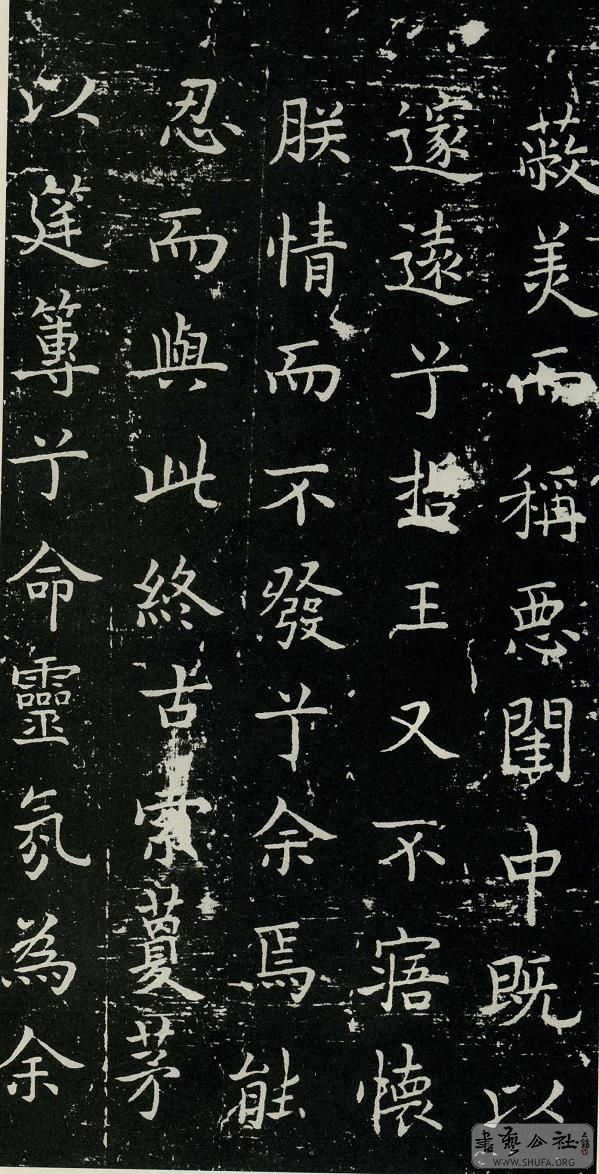 蔽美而稱惡閨中既以
邃遠兮哲王又不寤懷
朕情而不發兮余焉能
忍而與此終古索藑茅
以筳篿兮命靈氛為余
書藝公社
WWW.SHUFA.ORG